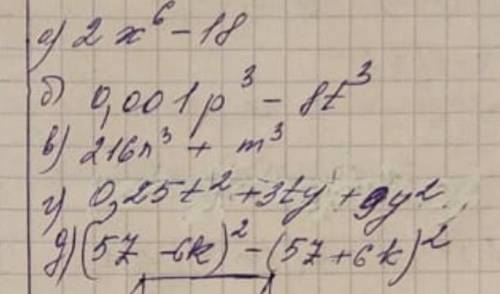 а) 2x⁶ - 18
б) 0,001p³ - 8t³
в) 216n³ + m³
г) 0,25t² + 3ty + 9y²
д) (5z - 6k)² - (5z + 6k)²